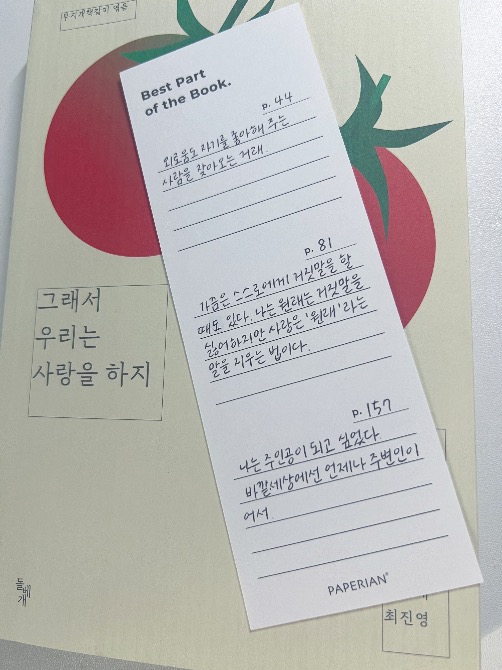 무지개책갈피 엮음
Best Part
of the Book.
p. 44
외로움도 자기를 좋아해 주는
사람을 찾아오는 거래
p. 81
가끔은 스스로에게 거짓말을 할
때도 있다. 나는 원래는 거짓말을
싫어하지만 사랑은 '원래'라는
말을 지우는 법이다.
p. 157
나는 주인공이 되고 싶었다.
바깥세상에선 언제나 주변인이
어서.
PAPERIAN
그래서
우리는
사랑을 하지
돌베개
최진영